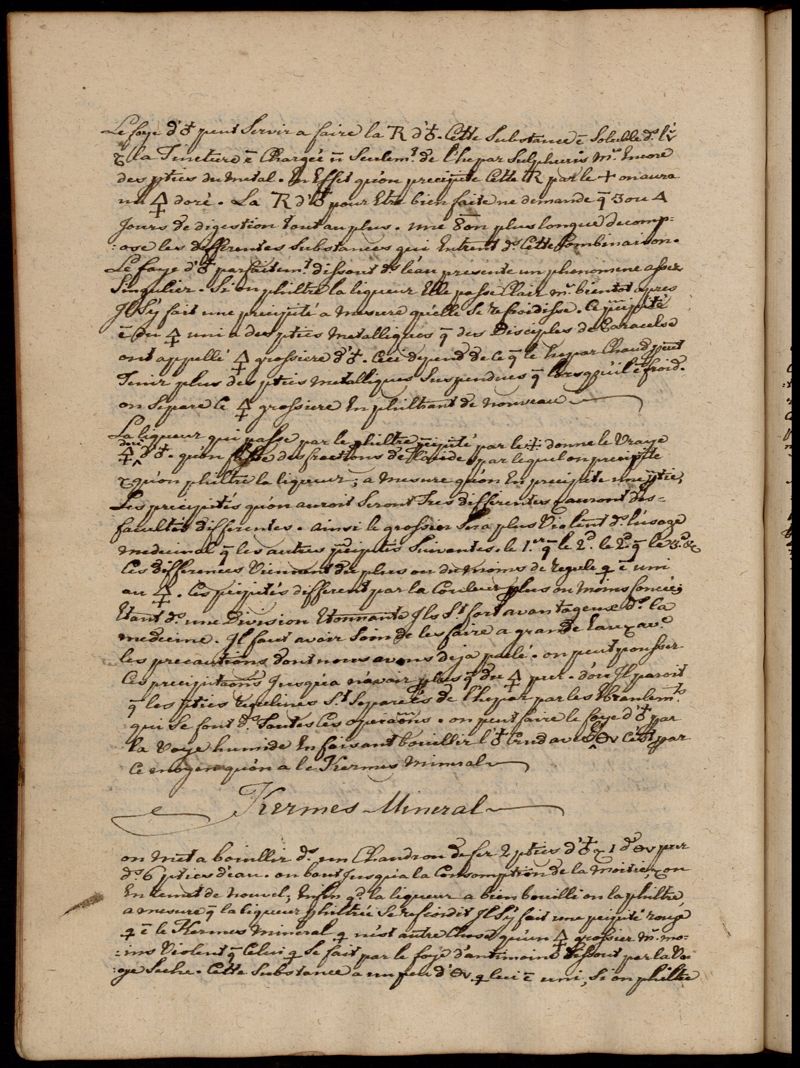 Le foye d'♁ peut Servir a faire la R d'♁. Cette Substance ē Soluble ds l'℣
& la Tincture ē Chargée ñ Seulemt de l'hepar Sulphuris ms Encore
des pties du metal. En Effet qu'on precipite Cette R par le + on aura
un 🜍 doré. La R d'♁ pour Etre bien faite ne demande q̄ 3 ou 4
Jours de digestion tout au plus. une 8on plus longue decomp=
:ose les differentes Substances qui Entrent ds Cette Combinaison.
Le foye d'♁ parfaitemt dissout ds l'eau presente un phenomene assez
Singulier. Si on philtre la liqueur Elle passe Clair ms bientot apres
Il S'y fait une precipité a mesure qu'elle Se refroidisse. Ce p̄cipité
ē du 🜍 uni a des pties metalliques q̄ des Disciples de Paracelse
ont appellé 🜍 grossiere d'♁. Ceci depend de Ce q̄ le hepar Chaud peut
Tenir plus des pties metalliques Suspendues q̄ lorsqu'il ē froid.
on Separe le 🜍 grossiere En philtrant de nouveau
La liqueur qui passe par le philtre p̄cipité par le + donne le Vraye
🜍 doré d'♁. qu'on fasse des fractions de l'acide par lequel on precipite
& qu'on philtre la liqueur, a mesure qu'on En precipite une ptie,
Les precipités qu'on auroit Seront Tres differentes & auront des=
facultés differentes. ainsi le grossier Sera plus Violent ds l'usage
medecinal q̄ les autres p̄cipités Suivantes. le 1er q̄ le 2d. le 2d q̄ le 3e &
Ces differences Viennent du plus ou du moins de regule q ē uni
au 🜍. Ces p̄cipités different par la Couleur plus ou moins foncée;
Etant ds une Division Etonnante Ils St fort avantageux ds la
medecine. Il faut avoir Soin de les faire a grande Eau & avc
les precautions dont nous avons deja parlé. on peut pousser
Ces precipitations Jusqu'a n'avoir plus q̄ du 🜍 pur. d'ou Il paroit
q̄ les pties regulines St Separées de l'hepar par les Ebranlemts
qui Se font ds Toutes Ces operaõns. on peut faire le foye d'♁ par
la Voye humide En faisant bouillir l'♁ Crud avec le ⊖v C'est par
Ce moyen qu'on a le Kermes mineral
Kermes Mineral
on met a bouillir ds un Chaudron de fer 2 pties d'♁ & 1 d ⊖v pur
ds 6 pties d'eau. on bout Jusqu'a la Consomption de la moitié, & on
En remet de nouvel, Enfin qd la liqueur a bien bouilli on la philtre,
a mesure q̄ la liqueur philtrée Se refroidit Il S'y fait une p̄cipité rouge
q ē le Kermes Mineral q n'est autre Chose qu'un 🜍 grossier ms mo-
:ins Violent q̄ Celui q Se fait par le foye d'antimoine dissout par la Vo-
:ye Seche. Cette Substance a un peu d'⊖v q lui ē uni, Si on philtre